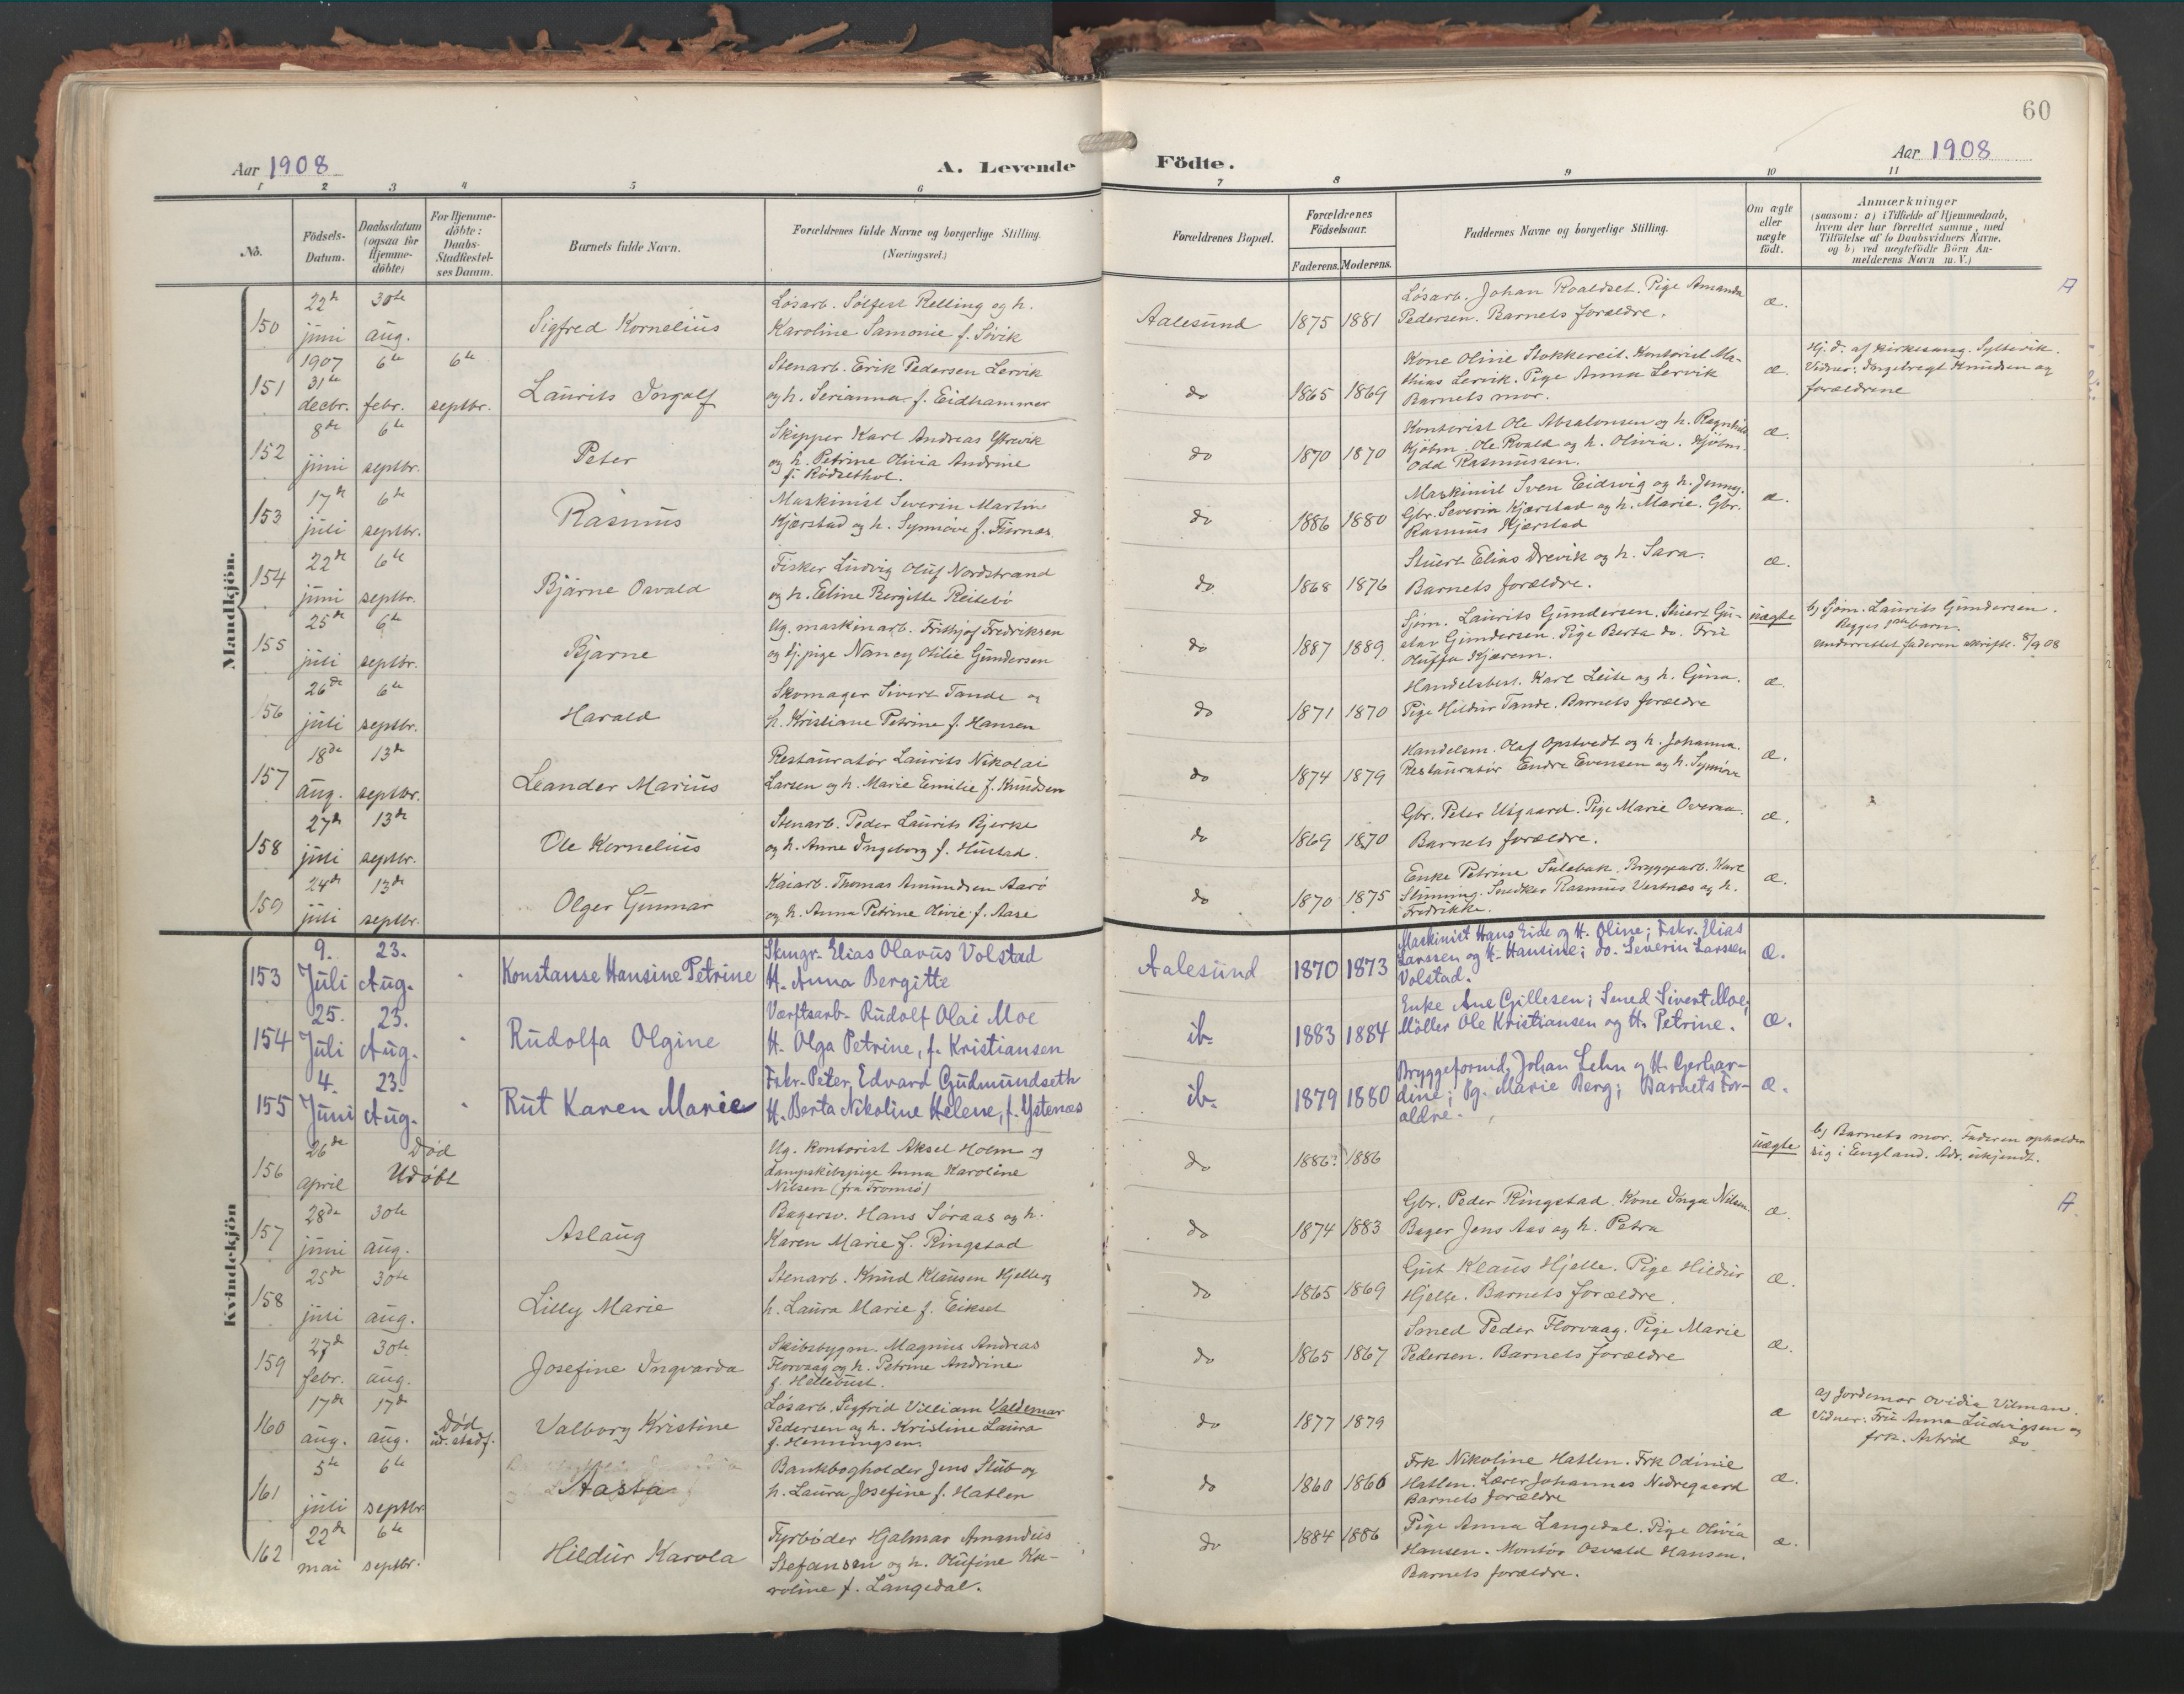 60
Aar 1908
A. Levende
Födte.
Aar 1908
1 2 3 4 5 6 7 8 9 10 11
No.
Födsels-Datum.
Daabsdatum (ogsaa for Hjemme-döbte)
For Hjemme-döbte: Daabs-Stadfæstel-ses Datum.
Barnets fulde Navn.
Forældrenes fulde Navne og borgerlige Stilling.
(Næringsvei.)
Forældrenes Bopæl.
Forældrenes Födselsaar.
Faderens. Moderens.
Faddernes Navne og borgerlige Stilling.
Om ægte eller uægte födt.
Anmærkninger
(saasom: a) i Tilfælde af Hjemmedaab,
hvem der har forrettet samme, med
Tilföielse af to Daabsvidners Navne,
og b) ved uægtefödte Börn An-
melderens Navn m. V.)
Mandkjön.
150 22de juni 30te aug. Sigfred Kornelius
Løsarb. Sölfest Relling og h.
Karoline Samonie f. Søvik
Aalesund 1875 1881
Løsarb. Johan Roaldset. Pige Amanda
Pedersen. Barnets forældre.
æ.
A
151 1907 31te decbr. 6te febr. 6te septbr. Laurits Ingolf
Stenarb. Erik Pedersen Lervik
og h. Serianna f. Eidhammer
do 1865 1869
Kone Olinie Stokkereit. Kontorist Ma-
thias Lervik. Pige Anna Lervik
Barnets mor.
æ.
Hj. d. af kirkesang. Sylterik.
Vidner: Ingebregt Knudsen og
forældrene
152 8de juni 6te septbr. Peter
Skipper Karl Andreas
og h. Petrine Olivia Andrine
f. Rödsethol.
do 1870 1870
Kontorist Ole Absalonsen og h. Ragnhild
Kjöbm. Ole Roald og h. Olivia. Kjöbm.
Odd Rasmussen.
æ.
153 17de juli 6te septbr. Rasmus
Maskinist Severin Martin
Kjærstad og h. Synnöve f. Fürnæs
do 1886 1880
Maskinist Sven Eidsvig og h. Jenny.
Gbr. Severin Kjærstad og h. Marie. Gbr.
Rasmus Kjærstad
æ.
154 22de juni 6te septbr. Bjarne Osvald
Fisker Ludvig Oluf Nordstrand
og h. Eline Bergitte Reitebö
do. 1868 1876
Stuert Elias Drevik og h. Sara.
Barnets forældre.
æ.
155 25de juli 6te septbr. Bjarne
Ug. maskinarb. Frithjof Fredriksen
og tj.pige Nancy Otilie Gundersen
do 1887 1889
Sjöm. Laurits Gundersen. Stuert Gu-
stav Gundersen. Pige Berta do. Fru
Oluffa Kjærem.
uægte
b) Sjöm. Laurits Gundersen.
Begges barn.
Underrettet faderen skriftl. 8/9 08
156 26de juli 6te septbr. Harald
Skomager Sivert Tande og
h. Kristiane Petrine f. Hansen
do 1871 1870
Handelsbest. Karl Leite og h. Gina.
Pige Hildur Tande. Barnets forældre
æ.
157 18de aug. 13de septbr. Leander Marius
Restauratör Laurits Nikolai
Larsen og h. Marie Emilie f. Knudsen
do 1874 1879
Handelsm. Olaf Opstvedt og h. Johanna.
Restauratör Endre Evensen og h. Synnöve
æ.
158 27de juli 13de septbr. Ole Kornelius
Stenarb. Peder Laurits Bjerke
og h. Anne Ingeborg f. Hustad.
do 1869 1870
Gbr. Peter Usgaard. Pige Marie Overaa.
Barnets forældre.
æ.
159 24de juli 13de septbr. Olger Gunnar
Kaiarb. Thomas Amundsen Aarö
og h. Anna Petrine Olivie f. Aase
do 1870 1875
Enke Petrine Sulebak. Bryggearb. Karl
Slinning. Snedker Rasmus Vestnæs og h.
Fredrikke.
æ.
Kvindekjön
153 9. Juli 23. Aug. Konstanse Hansine Petrine
Skmgr. Elias Olavus Volstad
H. Anna Bergitte
Aalesund 1870 1873
Maskinist Hans Eide og H. Oline; Fskr. Elias
Larssen og H. Hansine; do. Severin Larssen
Volstad.
Æ.
154 25. Juli 23. Aug. Rudolfa Olgine
Værftsarb. Rudolf Olai Moe
H. Olga Petrine, f. Kristiansen
ib. 1883 1884
Enke Ane Gillesen; Smed Sivert Moe;
Möller Ole Kristiansen og H. Petrine.
Æ.
155 4. Juni 23. Aug. Rut Karen Marie
Fskr. Peter Edvard Gudmundseth
H. Berta Nikoline Helene, f. Ystenæs
ib. 1879 1880
Bryggeformd. Johan Lehn og H. Gerhar-
dine; Pg. Marie Berg; Barnets For-
ældre.
Æ.
156 26de april Död Udöbt
Ug. kontorist Aksel Holm og
dampskibspige Anna Karoline
Nilsen (fra Tromsö)
do 1886? 1886
uægte
b) Barnets mor. Faderen opholder
sig i England. Adr. ukjendt.
157 28de juni 30te aug. Aslaug
Bagersv. Hans Søraas og h.
Karen Marie f. Ringstad
do 1874 1883
Gbr. Peder Ringstad. Kone Inga Nilsen
Bager Jens Aas og h. Petra
æ.
A.
158 25de juli 30te aug. Lilly Marie
Stenarb. Knud Klausen Hjelle og
h. Laura Marie f. Eikset
do 1865 1869
Gut Klaus Hjelle. Pige Hildur
Hjelle. Barnets forældre.
æ.
159 27de febr. 30te aug. Josefine Ingvarda
Skibsbygm. Magnus Andreas
Florvaag og h. Petrine Andrine
f. Hellebust.
do 1865 1867
Smed Peder Florvaag. Pige Marie
Pedersen. Barnets forældre
æ.
160 17de aug. 17de aug. Död ud. stadf. Valborg Kristine
Løsarb. Sigfrid Villiam Valdemar
Pedersen og h. Kristine Laura
f. Henningsen.
do 1877 1879
æ
a) Jordemor Ovidia Vilman.
Vidner: Fru Anna Ludvigsen og
frk. Astrid do.
161 5te juli 6te septbr. Aasta
Bankbogholder Jens Stub og
h. Laura Josefine f. Hatlen
do 1860 1866
Frk Nikoline Hatlen. Frk Odinie
Hatlen. Lærer Johannes Nedregaard
Barnets forældre
æ.
162 22de mai 6te septbr. Hildur Karola
Fyrböder Hjalmar Amandus
Stefansen og h. Olufine Ka-
roline f. Langedal.
do 1884 1886
Pige Anna Langedal. Pige Olivia
Hansen. Montör Osvald Hansen.
Barnets forældre.
æ.